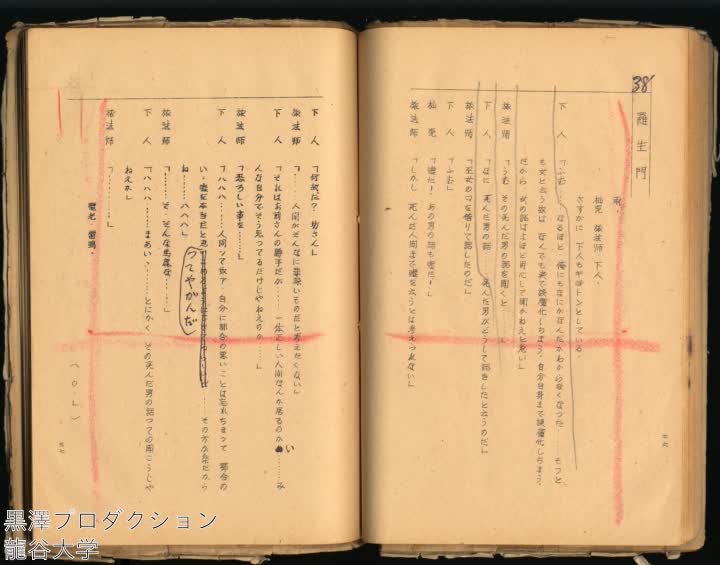 38
羅生門
雨。
杣売 旅法師 下人。
さすがに 下人もキョトンとしている。
下人 「ふむ……なるほど 俺にもなにがなんだかわからなくなった…… もっと
も女と云う奴は なんでも涙で誤魔化しちまう、自分自身まで誤魔化しちまう。
だから 女の話はよほど用心して聞かねえと危い」
旅法師 「うむ その死んだ男の話を聞くと……」
下人 「なに 死んだ男の話…… 死んだ男がどうして話をしたと云うのだ」
旅法師 「巫女の口を借りて話したのだ」
下人 「ふむ」
杣売 「嘘だ！ あの男の話も嘘だ！」
旅法師 「しかし 死んだ人間まで嘘を云うとは考えられない」
下人 「何故だ？ 坊さん」
旅法師 「……人間がそんなに罪深いものだと考えたくない」
下人 「それはお前さんの勝手だが…… 一体正しい人間なんか居るのかい……み
んな自分でそう思ってるだけじゃねえのか……」
旅法師 「恐ろしい事を……」
下人 「ハハハ……人間って奴ア 自分に都合の悪いことは忘れちまって 都合の
い、嘘を本当だと思
ってやがんだ
……その方が楽だから
ね……ハハハ」
旅法師 「……そ、そんな馬鹿な……」
下人 「ハハハ……まあいゝ……とにかく その死んだ男の話っての聞こうじゃ
ねえか」
旅法師 「………」
電光 雷鳴。
(O・L)
黒澤プロダクション
龍谷大学